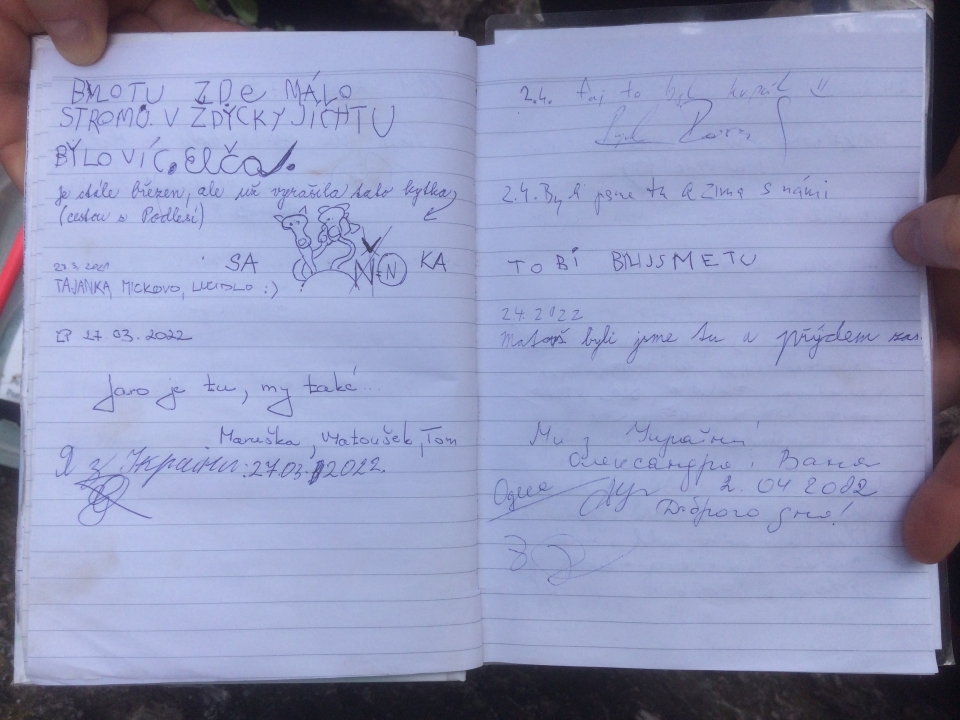 BYLOTU ZDE MÁLO
STROMŮ. V ŽDYCKY JICHTU
BÝLO VÍC. Elča.
je stále březen, ale už vyrašila tato kytka
(cestou z Podlesí)
SA
KA
N
27.3. 2021
TAJANKA, MICKOVO, LUCIDLO :)
27.03.2022
Jaro je tu, my také...
Maruška, Matoušek, Tom
Я з України 27.03.2022.
2.4. to byl
2.4. By li jsme tu a Zima s námi
TOBI BILIJSMETU
2.4.2022
Matouš byli jsme tu a přýdem zas.
Ми з України!
Олександра і Ваня
Одеса 2.04 2022
Доброго дня!